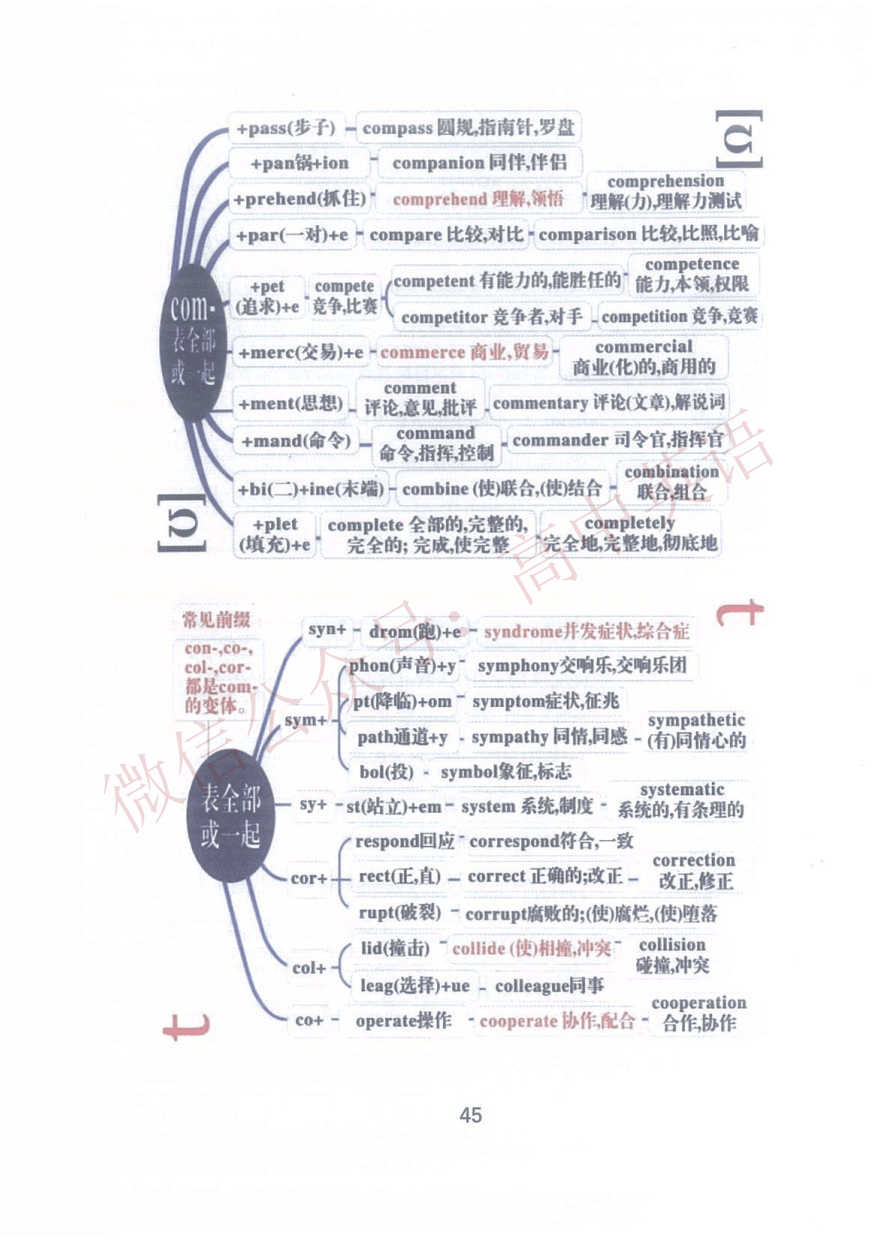 +pass(步子)
compass 圆规,指南针,罗盘
+pan锅+ion
companion 同伴,伴侣
+prehend(抓住)
comprehend 理解,领悟
comprehension
理解(力),理解力测试
+par(一对)+e
compare 比较,对比
comparison 比较,比照,比喻
+pet
(追求)+e
compete
竞争,比赛
competent 有能力的,能胜任的
competence
能力,本领,权限
competitor 竞争者,对手
competition 竞争,竞赛
com-
表全部
或一起
+merc(交易)+e
commerce 商业,贸易
commercial
商业(化)的,商用的
+ment(思想)
comment
评论,意见,批评
commentary 评论(文章),解说词
+mand(命令)
command
命令,指挥,控制
commander 司令官,指挥官
+bi(二)+ine(末端)
combine (使)联合,(使)结合
combination
联合,组合
+plet
(填充)+e
complete 全部的,完整的,
完全的; 完成,使完整
completely
完全地,完整地,彻底地
[Ω]
[Ʊ]
常见前缀
con-,co-,
col-,cor-
都是com-
的变体。
表全部
或一起
syn+
drom(跑)+e
syndrome并发症状,综合症
sym+
phon(声音)+y
symphony交响乐,交响乐团
pt(降临)+om
symptom症状,征兆
path通道+y
sympathy 同情,同感
sympathetic
(有)同情心的
bol(投)
symbol象征,标志
sy+
st(站立)+em
system 系统,制度
systematic
系统的,有条理的
cor+
respond回应
correspond符合,一致
rect(正,直)
correct 正确的;改正
correction
改正,修正
rupt(破裂)
corrupt腐败的;(使)腐烂,(使)堕落
col+
lid(撞击)
collide (使)相撞,冲突
collision
碰撞,冲突
leag(选择)+ue
colleague同事
co+
operate操作
cooperate 协作,配合
cooperation
合作,协作
t
t
微信公众号：高中英语
45